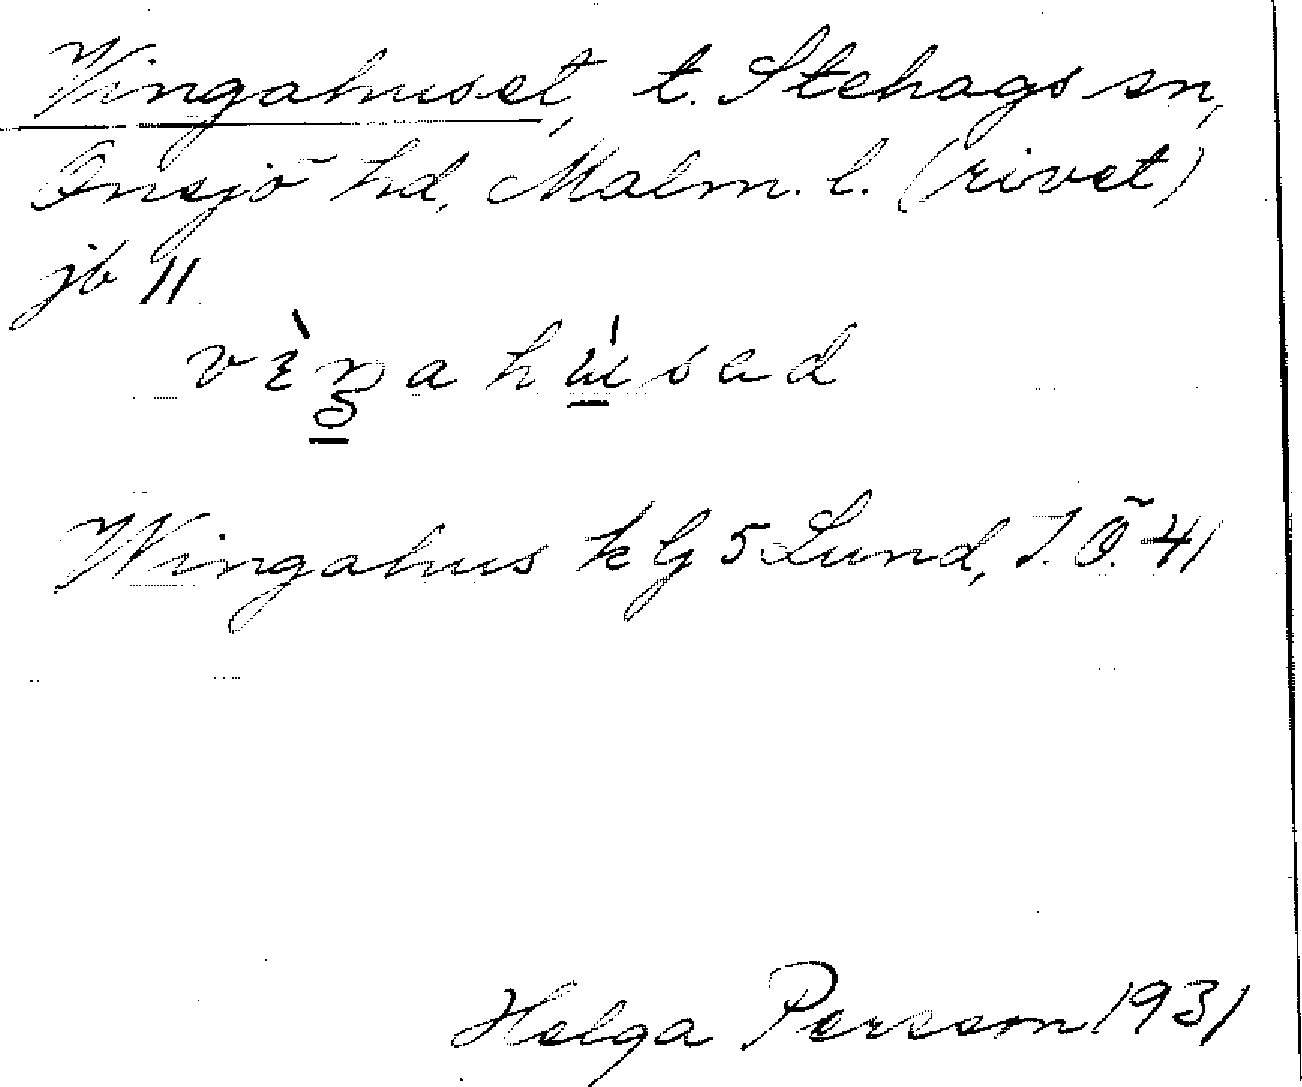 Vingahuset, t. Stehags sn,
Onsjö hd, Malm. l. (rivet)
jb 11
Wingahus k G 5 Lund, I. Ö. 41
Helga Persson 1931